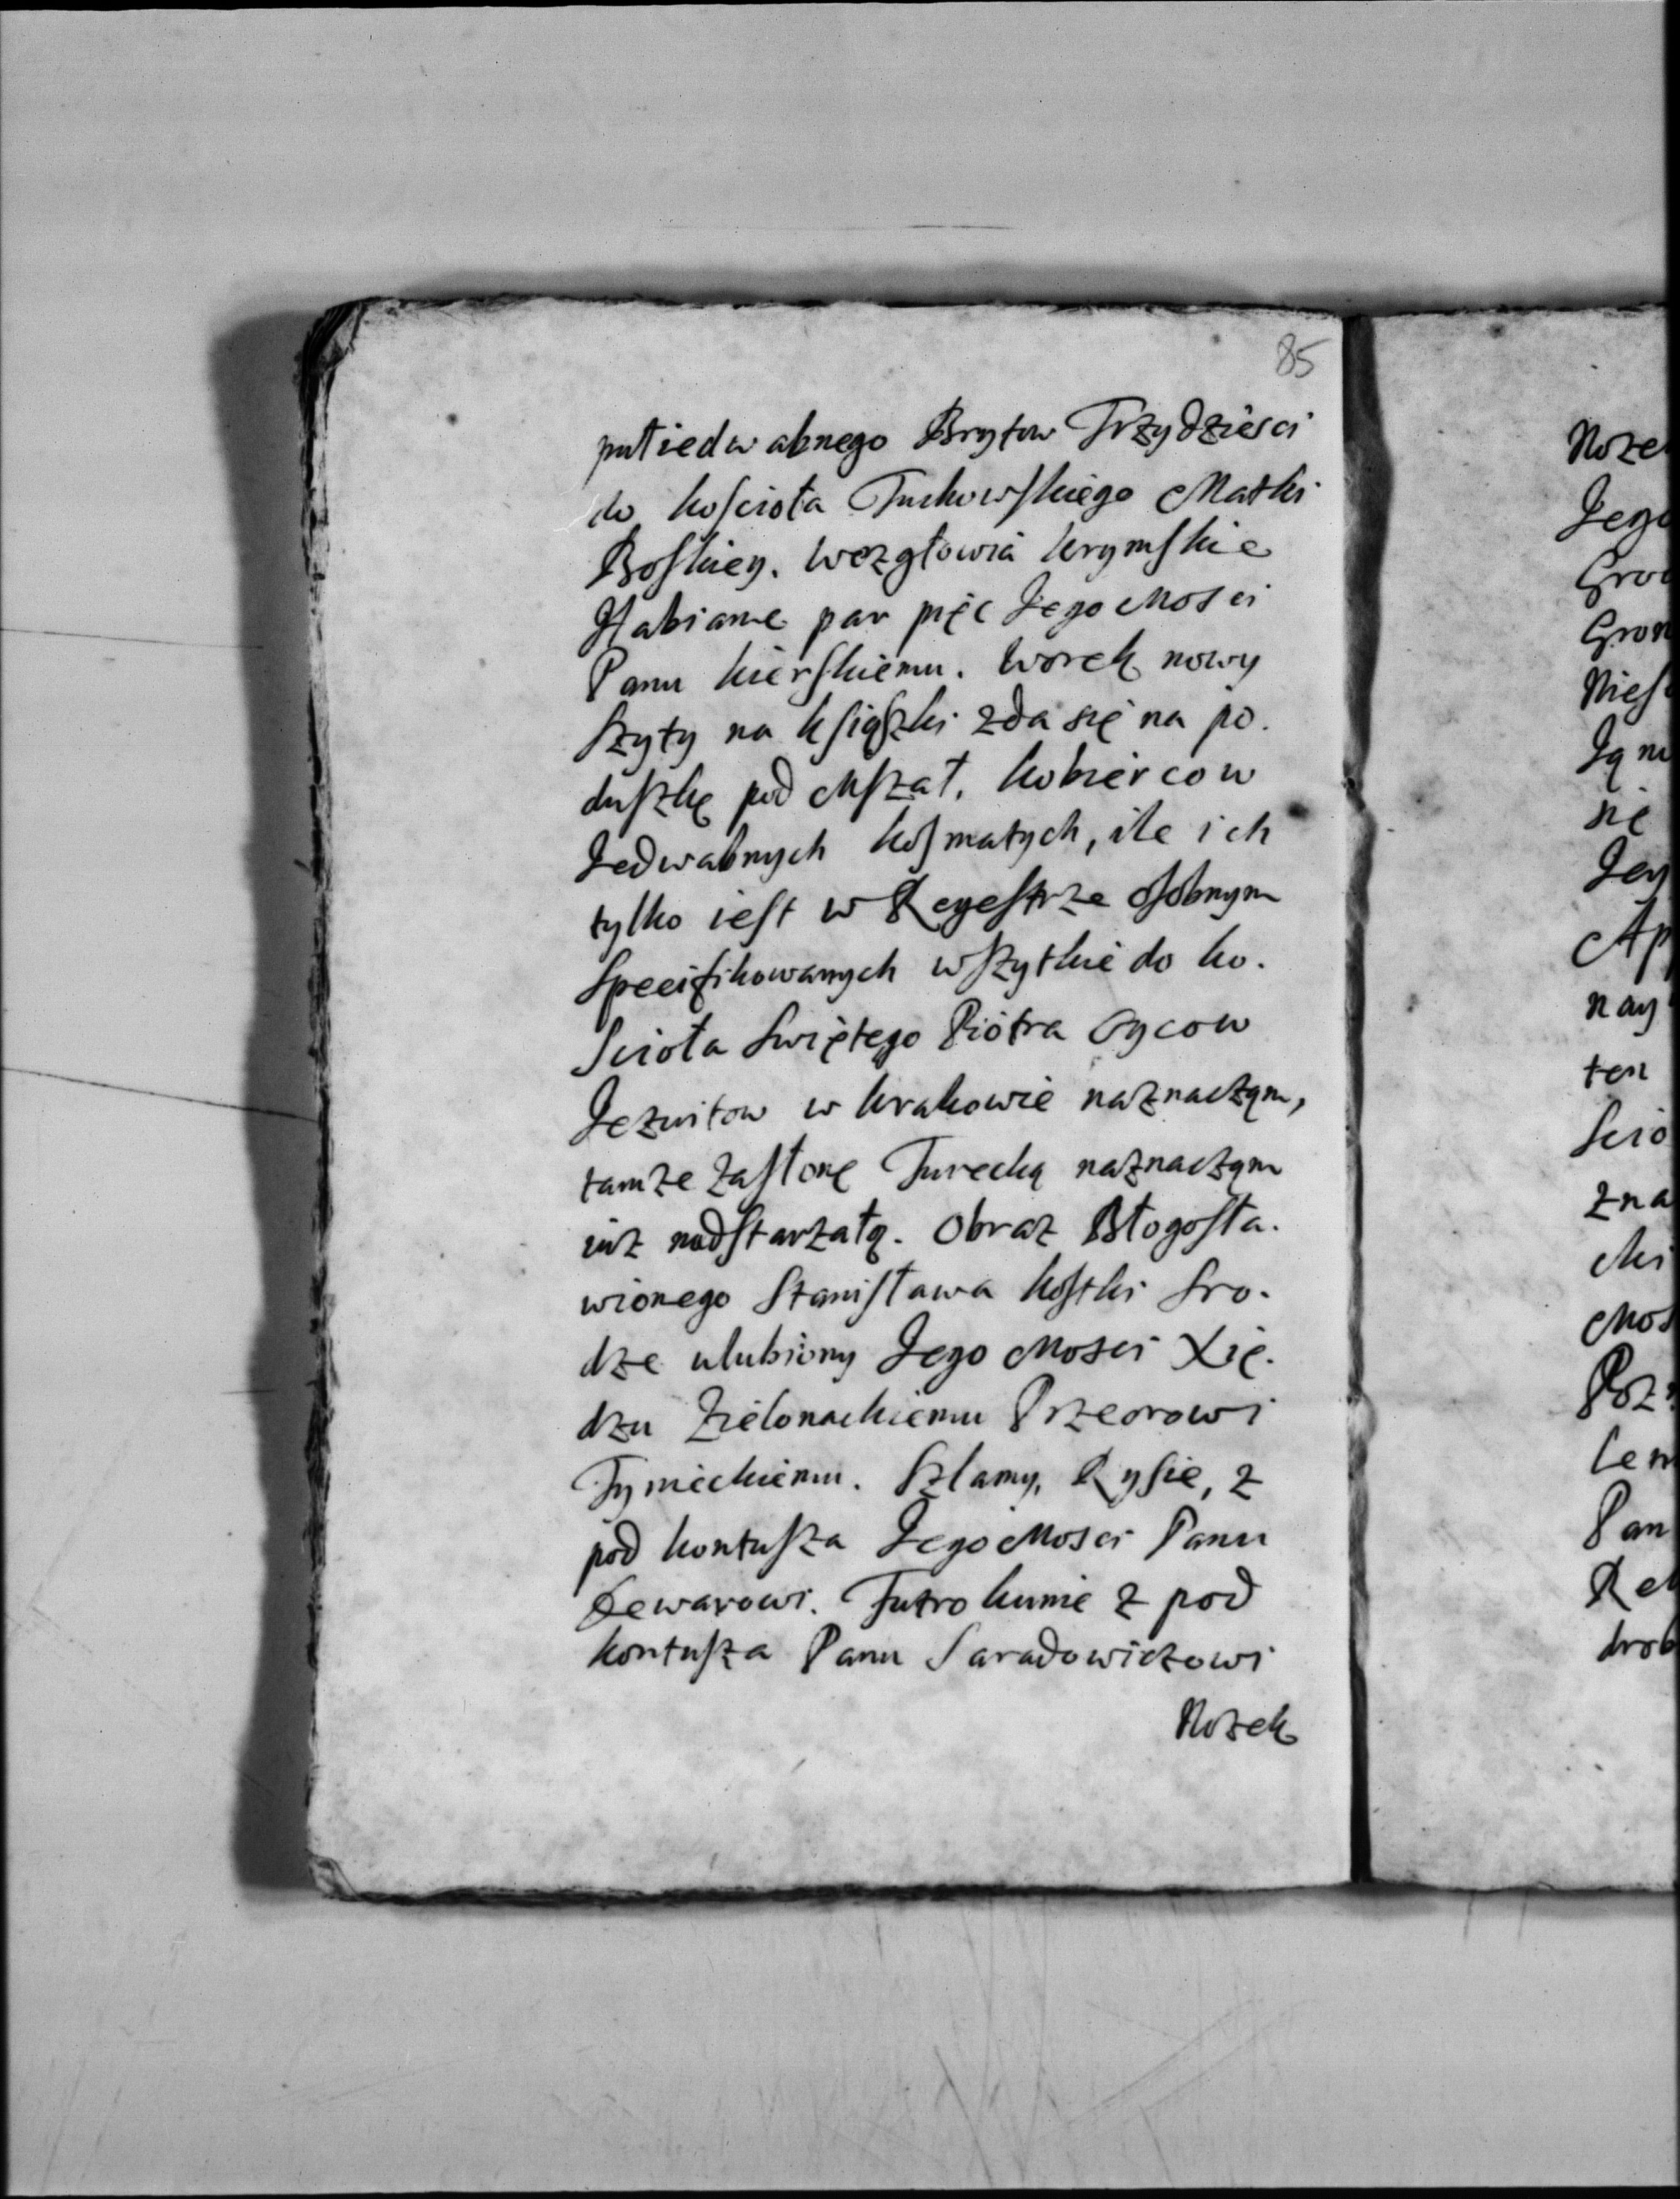 85
pułiedwabnego Brytow Trzydziesci
do kościoła Tuchowskiego Matki
Boskiey. Wezgłowia krymskie
Habiane par pięc Jego Mosci
Panu Kierskiemu. Worek nowy
szyty na ksiąszki zda się na po.
duszkę pod Mszał. Kobiercow
Jedwabnych kosmatych, ile ich
tylko iest w Regestrze osobnym
specifikowanych wszytkie do ko.
scioła Swiętego Piotra Oycow
Jezuitow w Krakowie naznacząm,
tamze zasłonę Turecką naznacząm
iuz nadstarzałą. Obraz Błogosła.
wionego Stanisława Kostki sro.
dze ulubiony Jego Mosci Xię.
dzu Zielonackiemu Przeorowi
Tynieckiemu. Szlamy, Rysie, z
pod kontusza Jego Mosci Panu
Dewarowi. Futro kunie z pod
kontusza Panu Saradowiczowi
Nozek
Noze
Jego
Gro
Gron
Nies
Ją m
się
Jey
Ap
nay
ten
scio
zna
Mi
Mos
Poz
len
Pan
Rek
drob